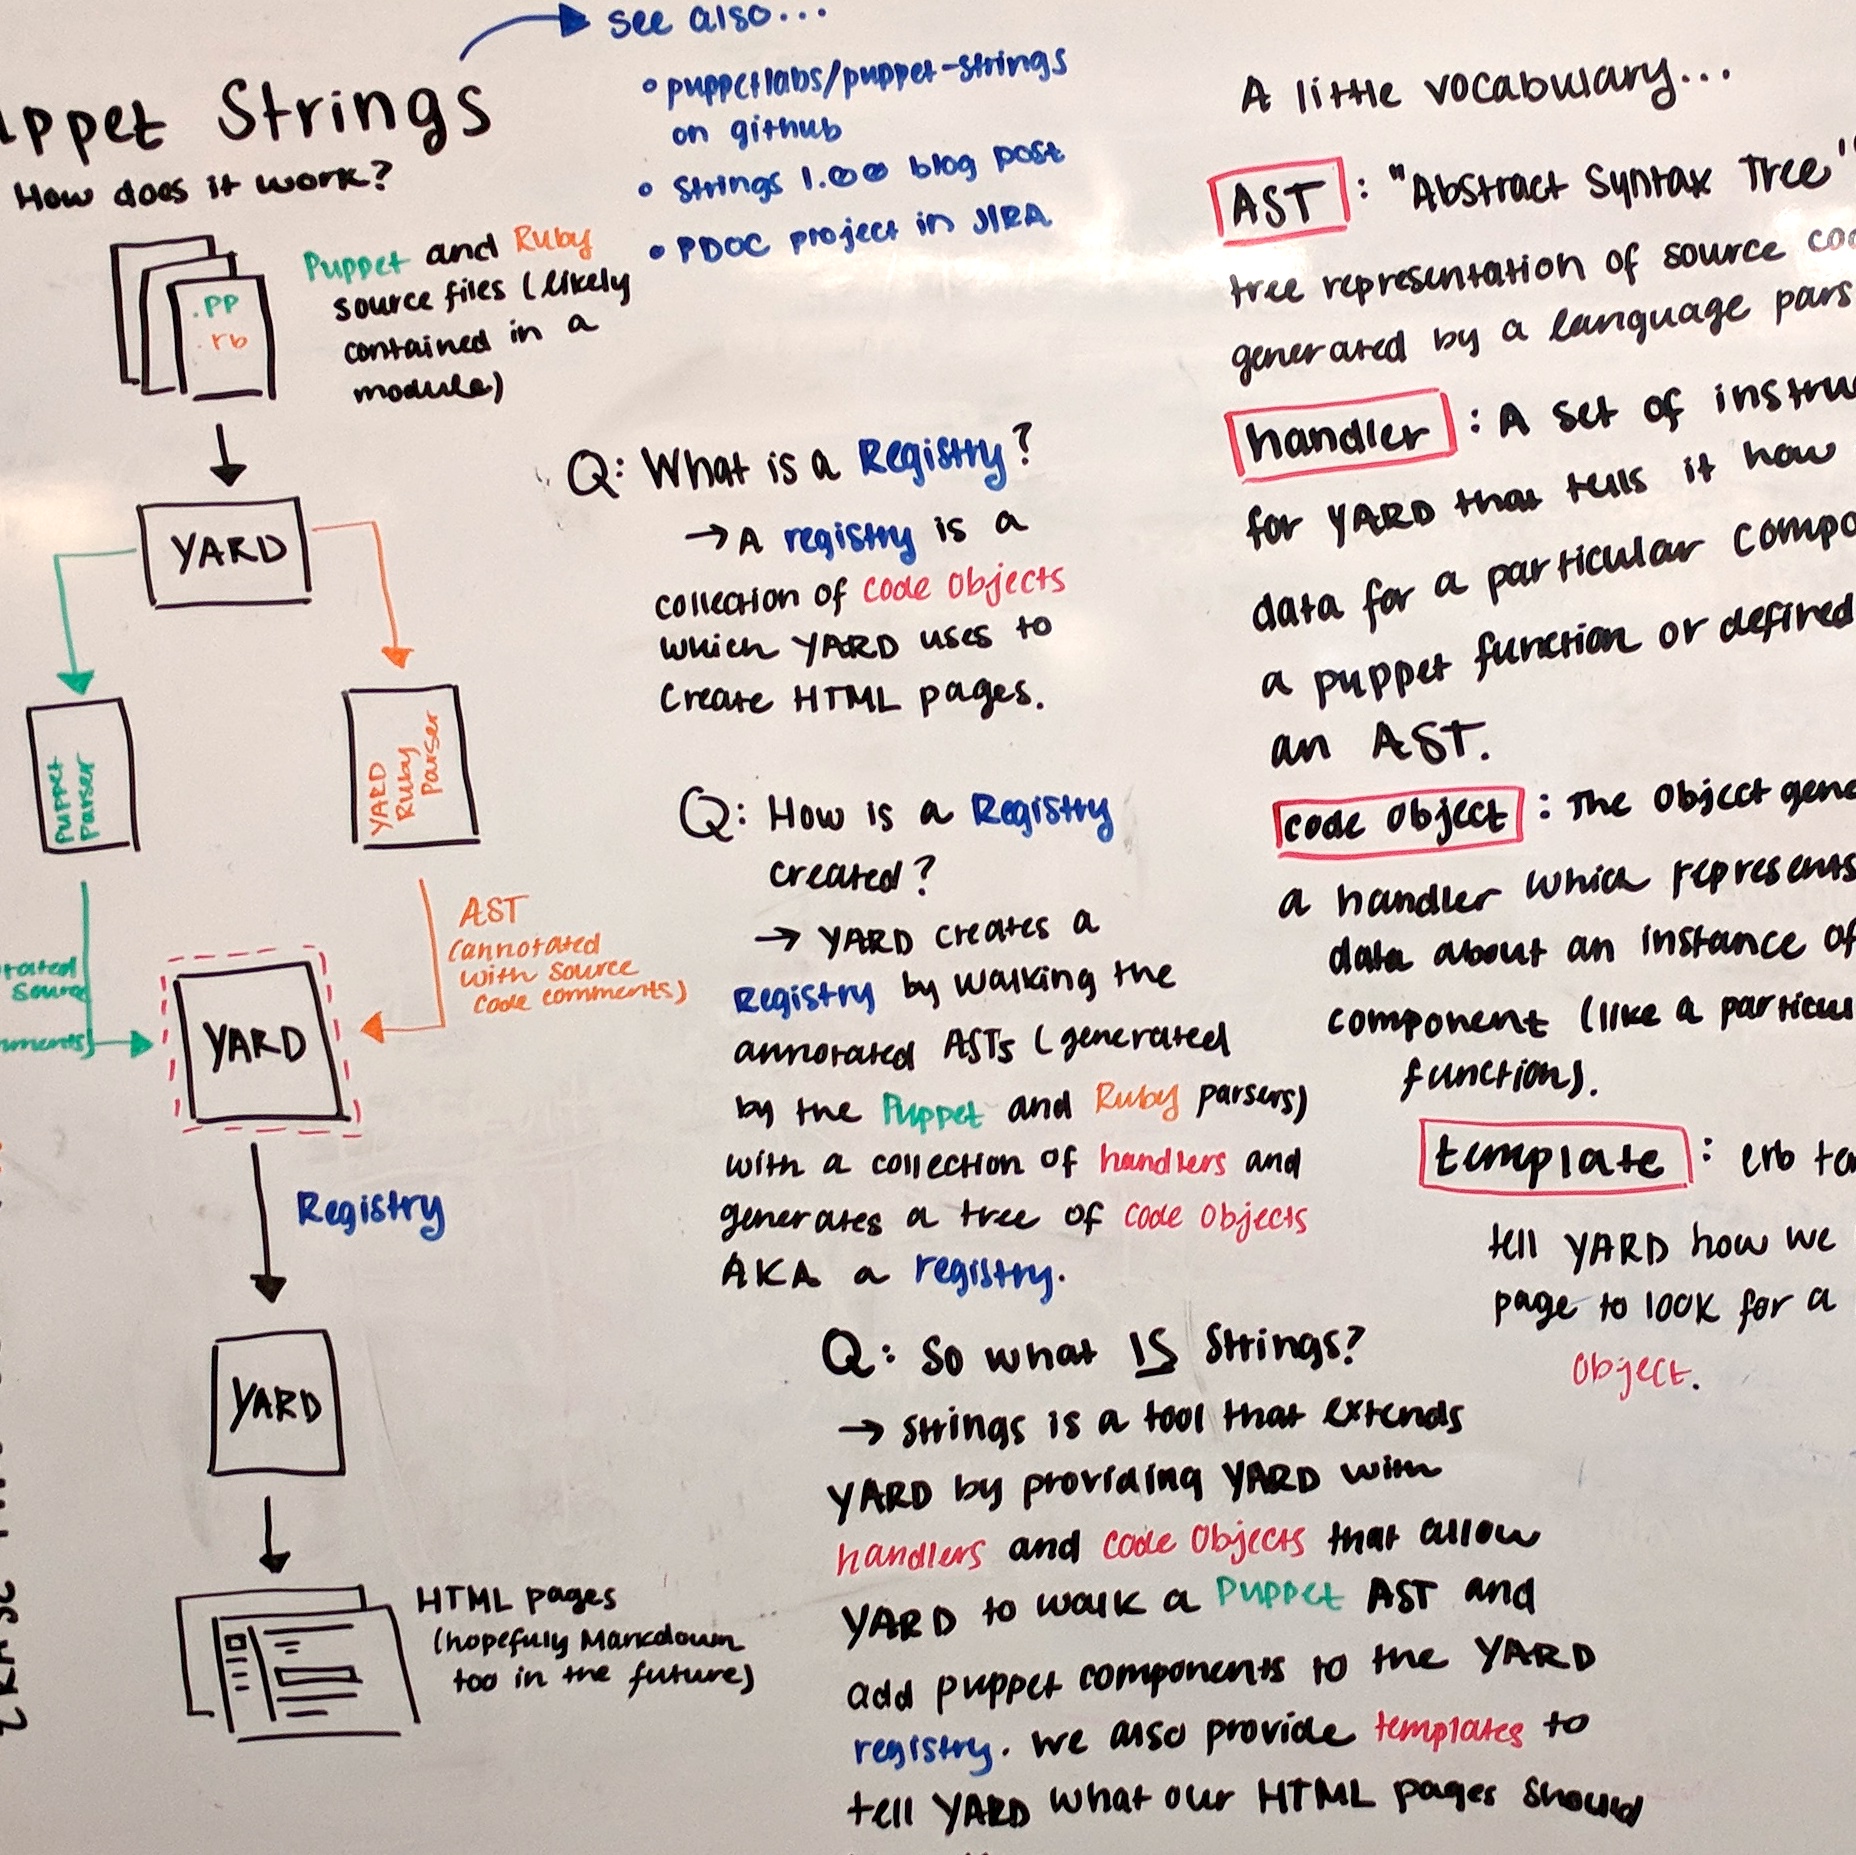 see also...
• puppetlabs/puppet-strings
on github
• Strings 1.0.0 blog post
• PDOC project in JIRA
Strings
How does it work?
.pp
.rb
Puppet and Ruby
source files (likely
contained in a
module)
YARD
Puppet
Parser
YARD
Ruby
Parser
AST
(annotated
with source
code comments)
YARD
Registry
YARD
HTML pages
(hopefully Markdown
too in the future)
Q: What is a Registry?
→ A registry is a
collection of code objects
which YARD uses to
create HTML pages.
Q: How is a Registry
created?
→ YARD creates a
Registry by walking the
annotated ASTs (generated
by the Puppet and Ruby parsers)
with a collection of handlers and
generates a tree of code objects
AKA a registry.
Q: So what IS Strings?
→ Strings is a tool that extends
YARD by providing YARD with
handlers and code objects that allow
YARD to walk a Puppet AST and
add puppet components to the YARD
registry. We also provide templates to
tell YARD what our HTML pages should
A little vocabulary...
AST : "Abstract Syntax Tree"
tree representation of source
generated by a language
handler : A set of
for YARD that tells it how
data for a particular
a puppet function or defined
an AST.
code object : The object
a handler which represents
data about an instance of
component (like a
function).
template : erb
tell YARD how we
page to look for a
object.